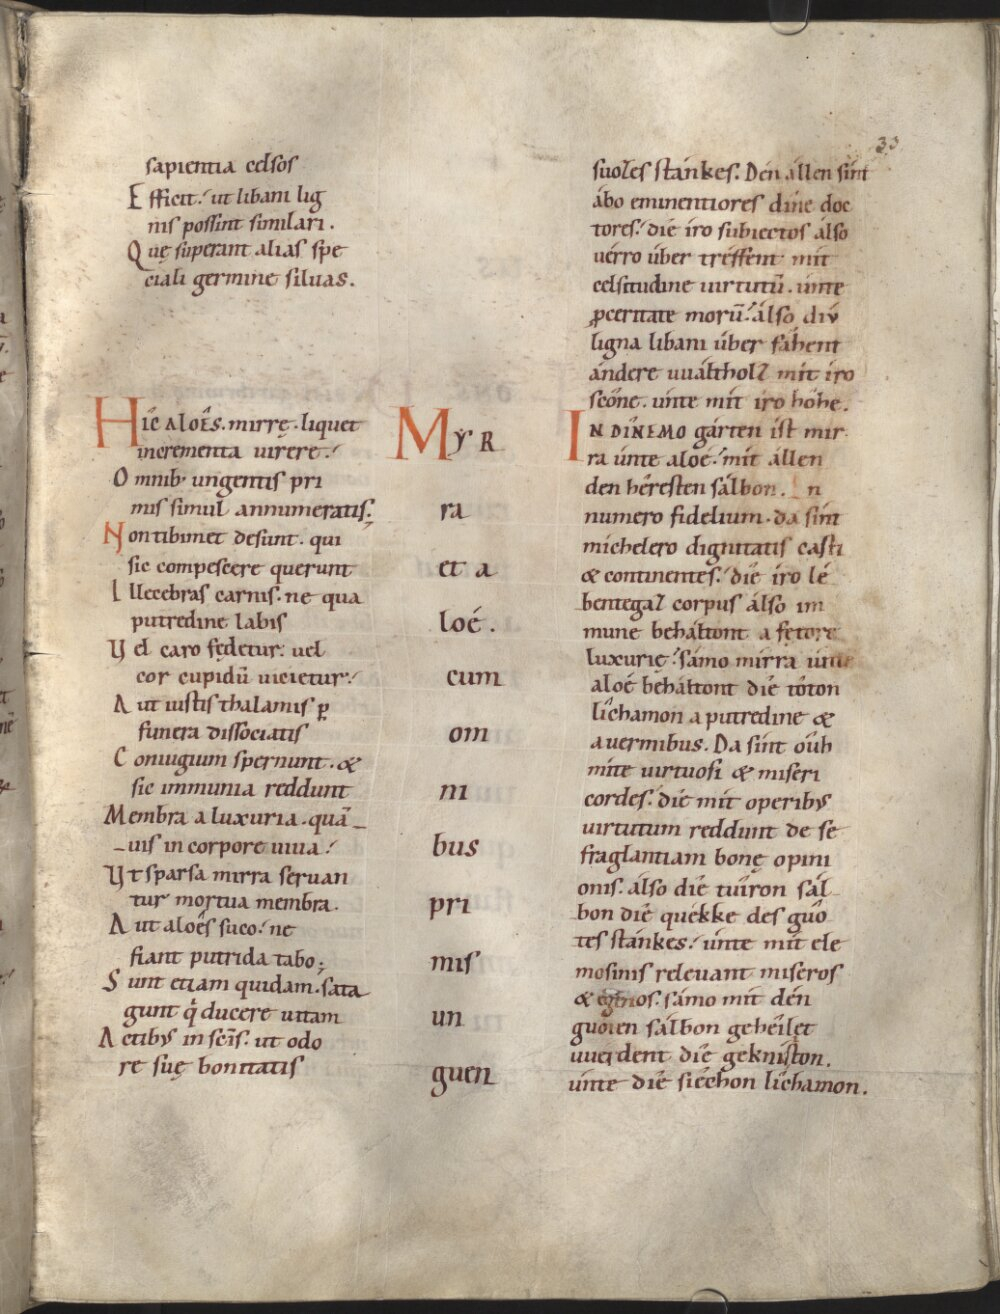 33
sapientia celsos
Efficit. ut libani lig
nis possint similari.
Quę superant alias spe
ciali germine siluas.
Hic aloes. mirrę. liquet
incrementa uirere.
Omnib; ungentis pri
mis simul annumeratis;
Non tibimet desunt. qui
sic compescere querunt
Illecebras carnis. ne qua
putredine labis
Vel caro fędetur. uel
cor cupidū uicietur.
Aut iustis thalamis ꝑ
funera dissociatis
Coniugium spernunt. &
sic immunia reddunt
Membra a luxuria. quā
uis in corpore uiua.
Vt sparsa mirra seruan
tur mortua membra.
Aut aloes suco. ne
fiant putrida tabo;
Sunt etiam quidam. sata
gunt q́ ducere uitam
Actibꝰ in scīs. ut odo
re suę bonitatis
Mẏr
ra
et a
loé.
cum
om
ni
bus
pri
mis
un
guen
suozes stánkes. Dén állen sint
ábo eminentiores díne doc
tores. dîe íro subiectos álso
uérro úber tréffent mít
celsitudine uirtutū. únte
ꝓceritate morū. álso dív
ligna libani úber fáhent
ándere uuáltholz mít íro
scône. únte mít íro hôhe.
In dinemo gárten íst mir
ra únte aloe. mít állen
den hêresten sálbon. In
numero fidelium. da sínt
míchelero dignitatis casti
& continentes. dîe íro lé
bentegaz corpus álso im
mune behâltont a fętore
luxurię. sámo mirra únte
aloé behâltont dîe tôton
lîchamon a putredine &
a uermibus. Da sínt oûh
míte uirtuosi & miseri
cordes. dîe mít operibꝰ
uirtutum reddunt de se
fraglantiam bonę opini
onis. álso dîe tûiron sál
bon dîe quékke des guô
tes stánkes. únte mít ele
mosinis releuant miseros
& egenos. sámo mít dén
guoten sálbon gehêilet
uuerdent dîe gekníston.
únte dîe sîechon lîchamon.